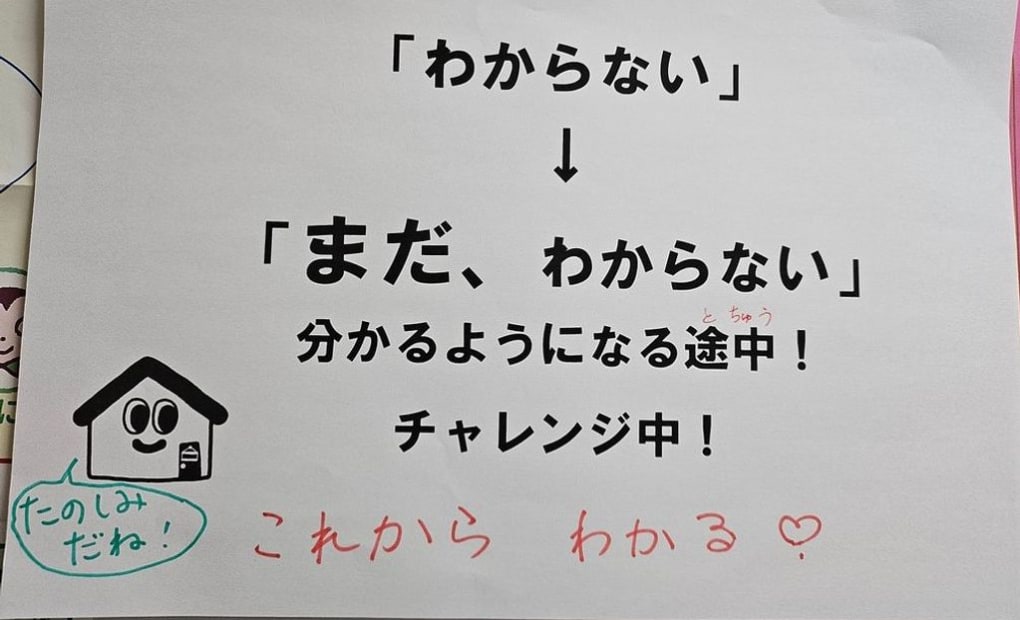 「わからない」
↓
「まだ、わからない」
とちゅう
分かるようになる途中！
チャレンジ中！
たのしみ
だね！
これから わかる♡